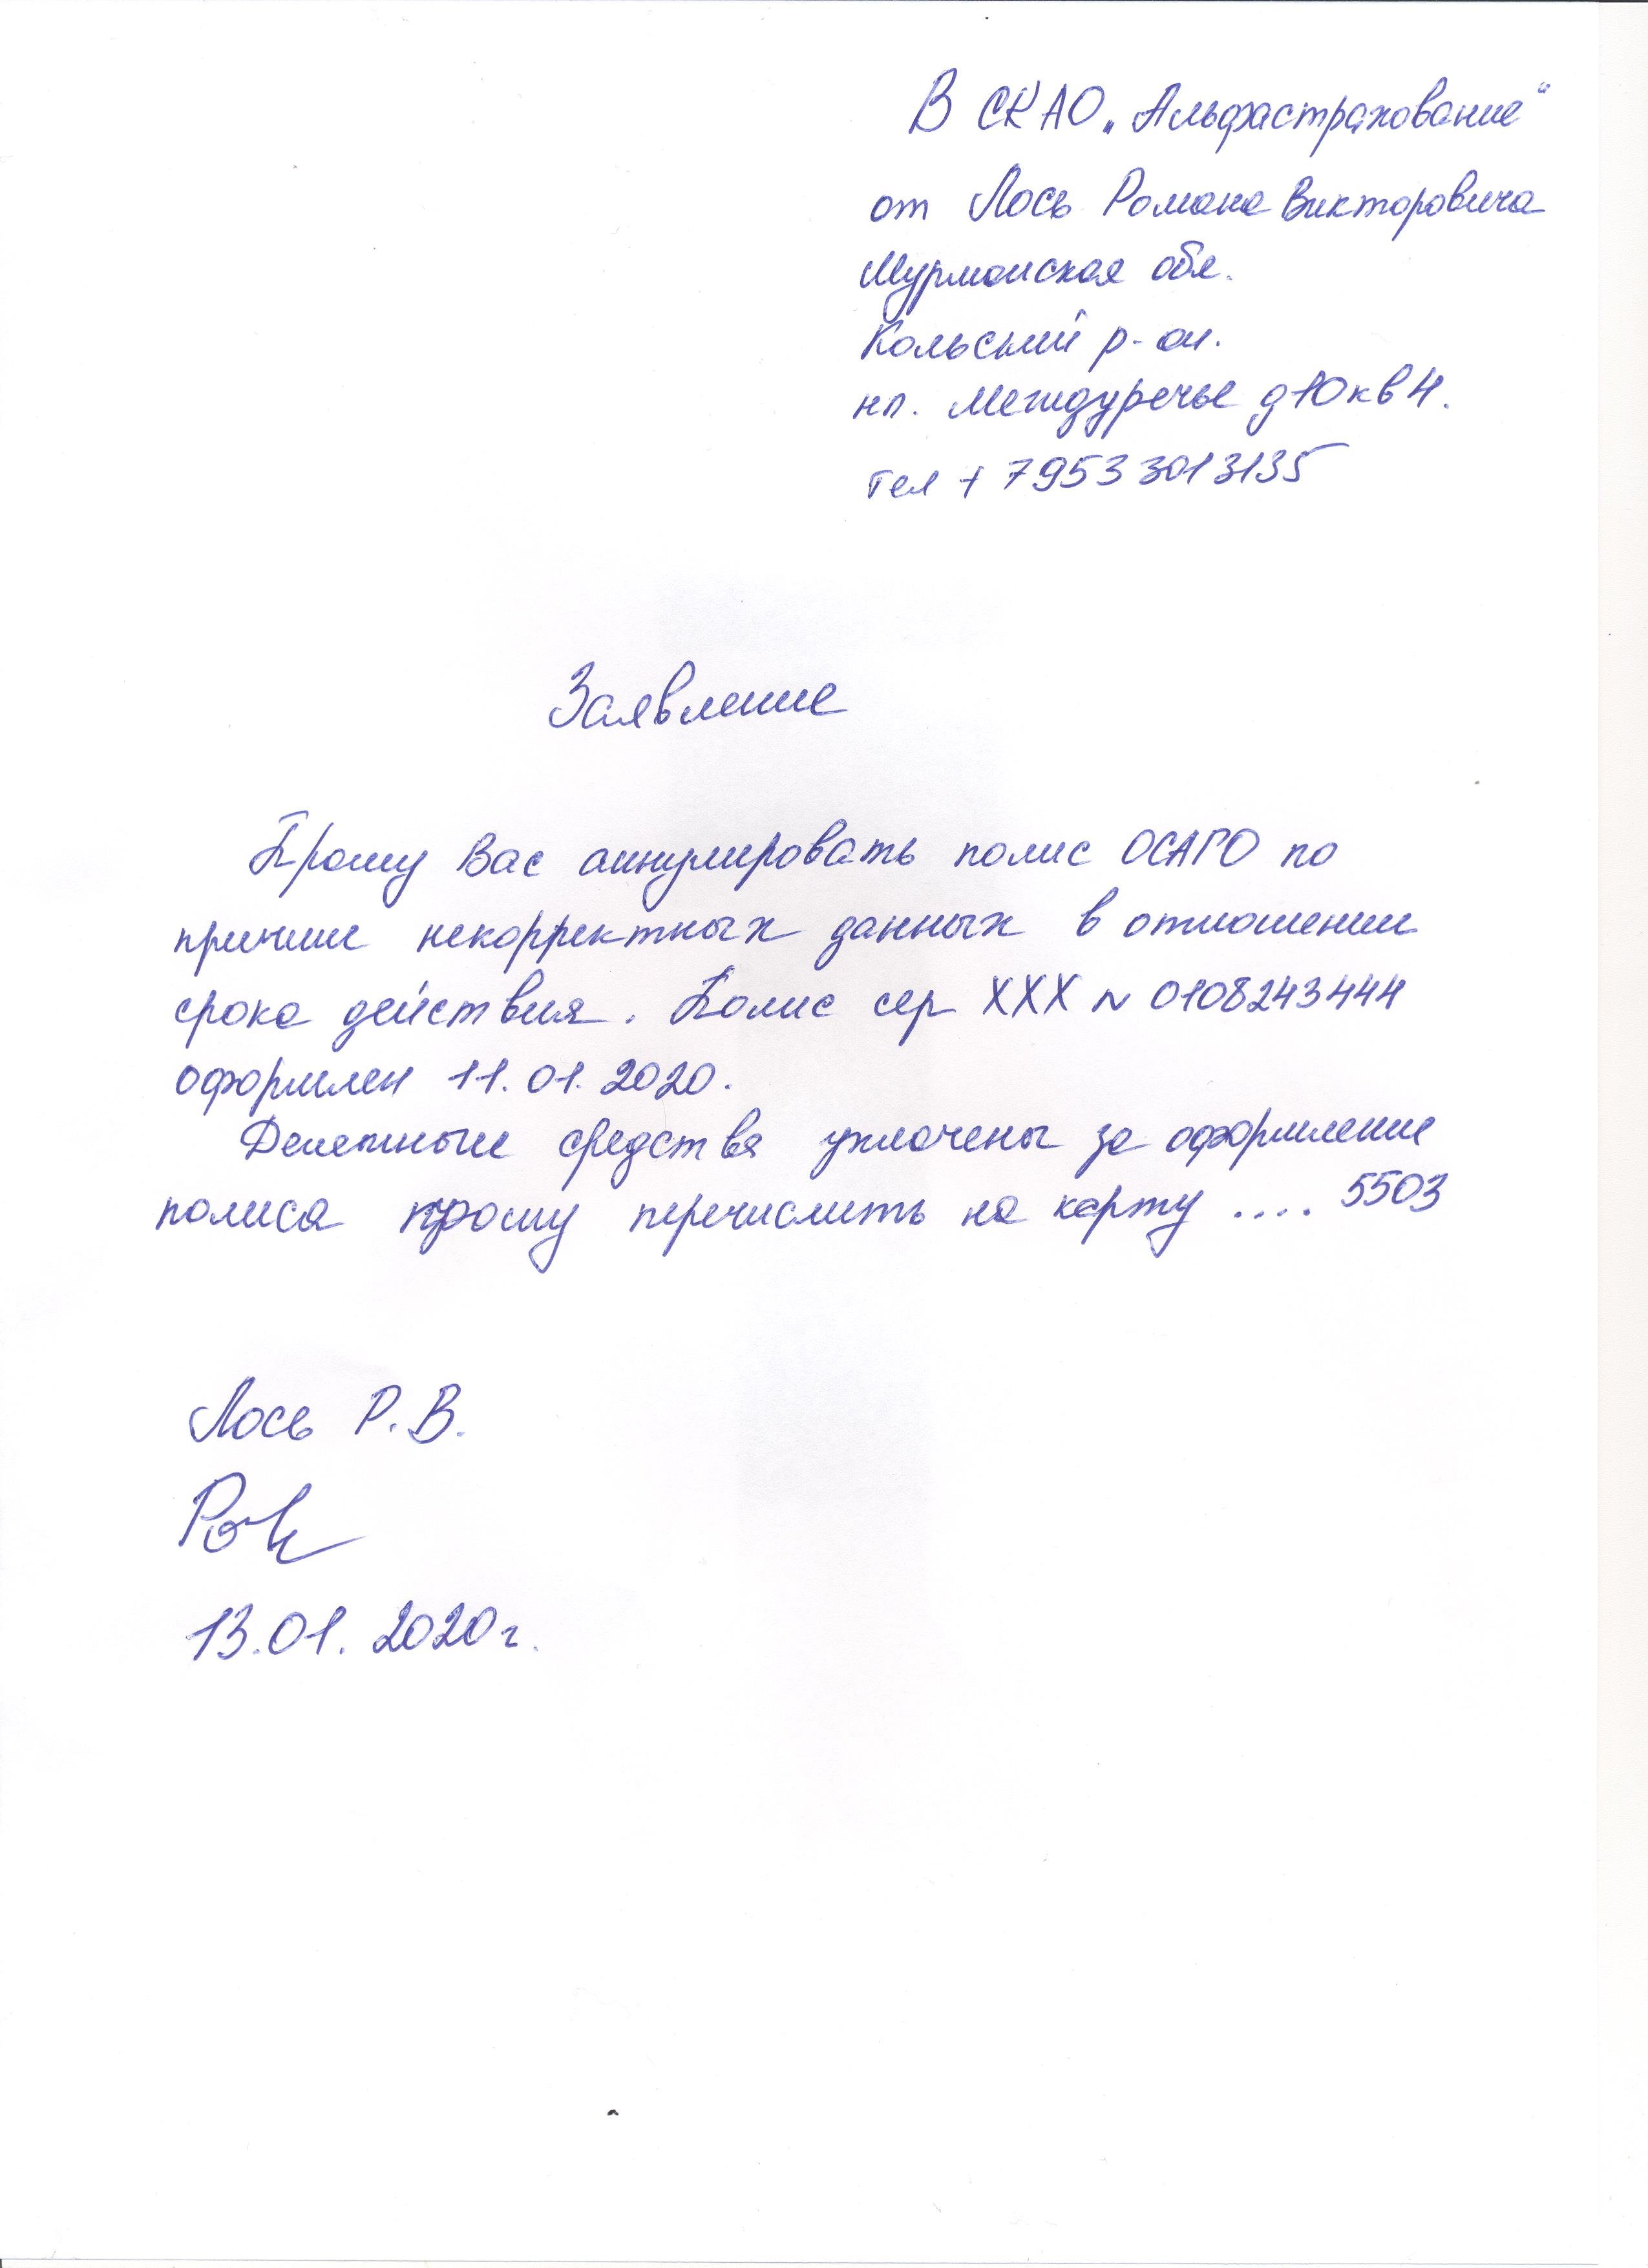 В СКАО „Альфастрахование“
от Лось Романа Викторовича
Мурманская обл.
Кольский р-он.
нп. Междуречье д10кв4.
тел +79533013135
Заявление
Прошу Вас аннулировать полис ОСАГО по
причине некорректных данных в отношении
срока действия. Полис сер ХХХ N 0108243444
оформлен 11.01.2020.
Денежные средства уплочены за оформление
полиса прошу перечислить на карту .... 5503
Лось Р.В.
13.01.2020г.